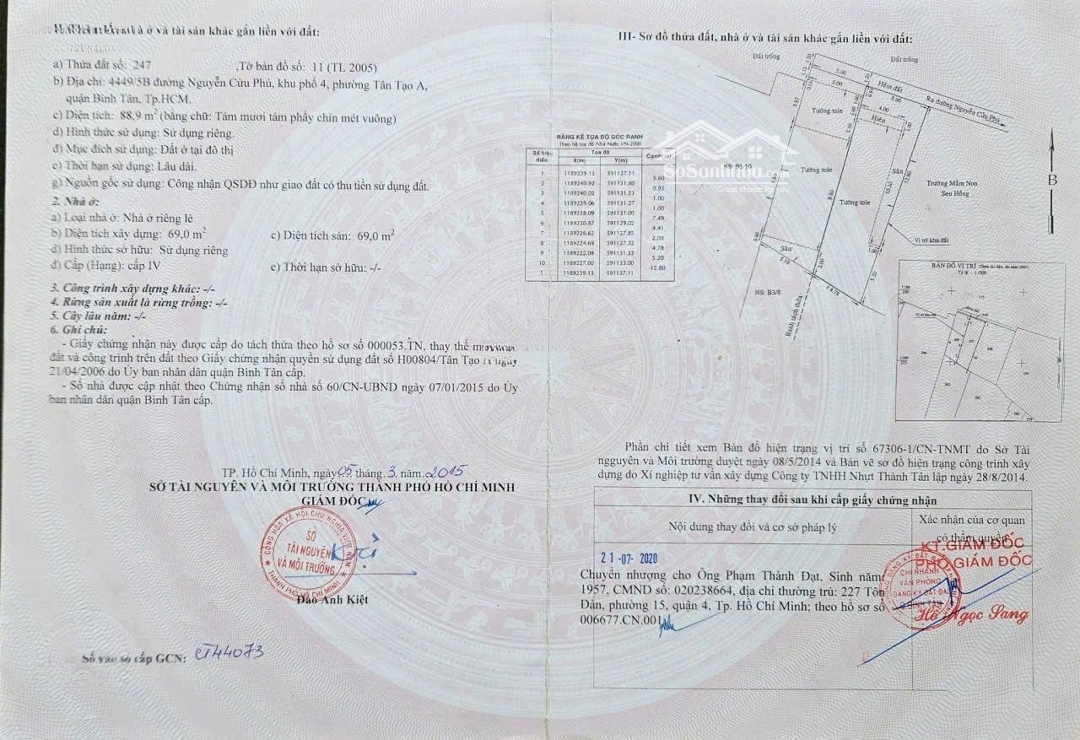 ở và tài sản khác gắn liền với đất:
a) Thửa đất số: 247 ,Tờ bản đồ số: 11 (TL 2005)
b) Địa chỉ: 4449/5B đường Nguyễn Cửu Phú, khu phố 4, phường Tân Tạo A,
quận Bình Tân, Tp.HCM.
c) Diện tích: 88,9 m² (bằng chữ: Tám mươi tám phẩy chín mét vuông)
d) Hình thức sử dụng: Sử dụng riêng.
đ) Mục đích sử dụng: Đất ở tại đô thị
e) Thời hạn sử dụng: Lâu dài.
g) Nguồn gốc sử dụng: Công nhận QSDĐ như giao đất có thu tiền sử dụng đất.
2. Nhà ở:
a) Loại nhà ở: Nhà ở riêng lẻ
b) Diện tích xây dựng: 69,0 m² c) Diện tích sàn: 69,0 m²
d) Hình thức sở hữu: Sử dụng riêng
đ) Cấp (Hạng): cấp IV e) Thời hạn sở hữu: -/-
3. Công trình xây dựng khác: -/-
4. Rừng sản xuất là rừng trồng: -/-
5. Cây lâu năm: -/-
6. Ghi chú:
- Giấy chứng nhận này được cấp do tách thửa theo hồ sơ số 000053.TN, thay thế
đất và công trình trên đất theo Giấy chứng nhận quyền sử dụng đất số H00804/Tân Tạo ngày
21/04/2006 do Ủy ban nhân dân quận Bình Tân cấp.
- Số nhà được cập nhật theo Chứng nhận số nhà số 60/CN-UBND ngày 07/01/2015 do Ủy
ban nhân dân quận Bình Tân cấp.
TP. Hồ Chí Minh, ngày 05 tháng 3 năm 2015
SỞ TÀI NGUYÊN VÀ MÔI TRƯỜNG THÀNH PHỐ HỒ CHÍ MINH
GIÁM ĐỐC
SỞ
TÀI NGUYÊN
VÀ MÔI TRƯỜNG
Đào Anh Kiệt
Số vào sổ cấp GCN: CT44073
III- Sơ đồ thửa đất, nhà ở và tài sản khác gắn liền với đất:
Đất trống
Đất trống
Hẻm đất
Ra đường Nguyễn Cửu Phú
Tường tole
Hiên
Sân
Tường tole
Tường tole
Trường Mầm Non
Sen Hồng
Vị trí khu đất
Sân
NS: B3/8
Ranh tách thửa
B
BẢNG KÊ TỌA ĐỘ GÓC RANH
Theo hệ tọa độ Nhà Nước VN-2000
Số hiệu điểm Tọa độ
X(m) Y(m) Cạnh(m)
SoSanhNha.com
Great choice for you
BẢN ĐỒ VỊ TRÍ
Phần chi tiết xem Bản đồ hiện trạng vị trí số 67306-1/CN-TNMT do Sở Tài
nguyên và Môi trường duyệt ngày 08/5/2014 và Bản vẽ sơ đồ hiện trạng công trình xây
dựng do Xí nghiệp tư vấn xây dựng Công ty TNHH Nhựt Thành Tân lập ngày 28/8/2014.
IV. Những thay đổi sau khi cấp giấy chứng nhận
Nội dung thay đổi và cơ sở pháp lý
Xác nhận của cơ quan
có thẩm quyền
21-07-2020
Chuyển nhượng cho Ông Phạm Thành Đạt, Sinh năm
1957, CMND số: 020238664, địa chỉ thường trú: 227 Tôn
Đản, phường 15, quận 4, Tp. Hồ Chí Minh; theo hồ sơ số
006677.CN.001
KT.GIÁM ĐỐC
PHÓ GIÁM ĐỐC
CHI NHÁNH
VĂN PHÒNG
ĐĂNG KÝ ĐẤT ĐAI
Hồ Ngọc Sang